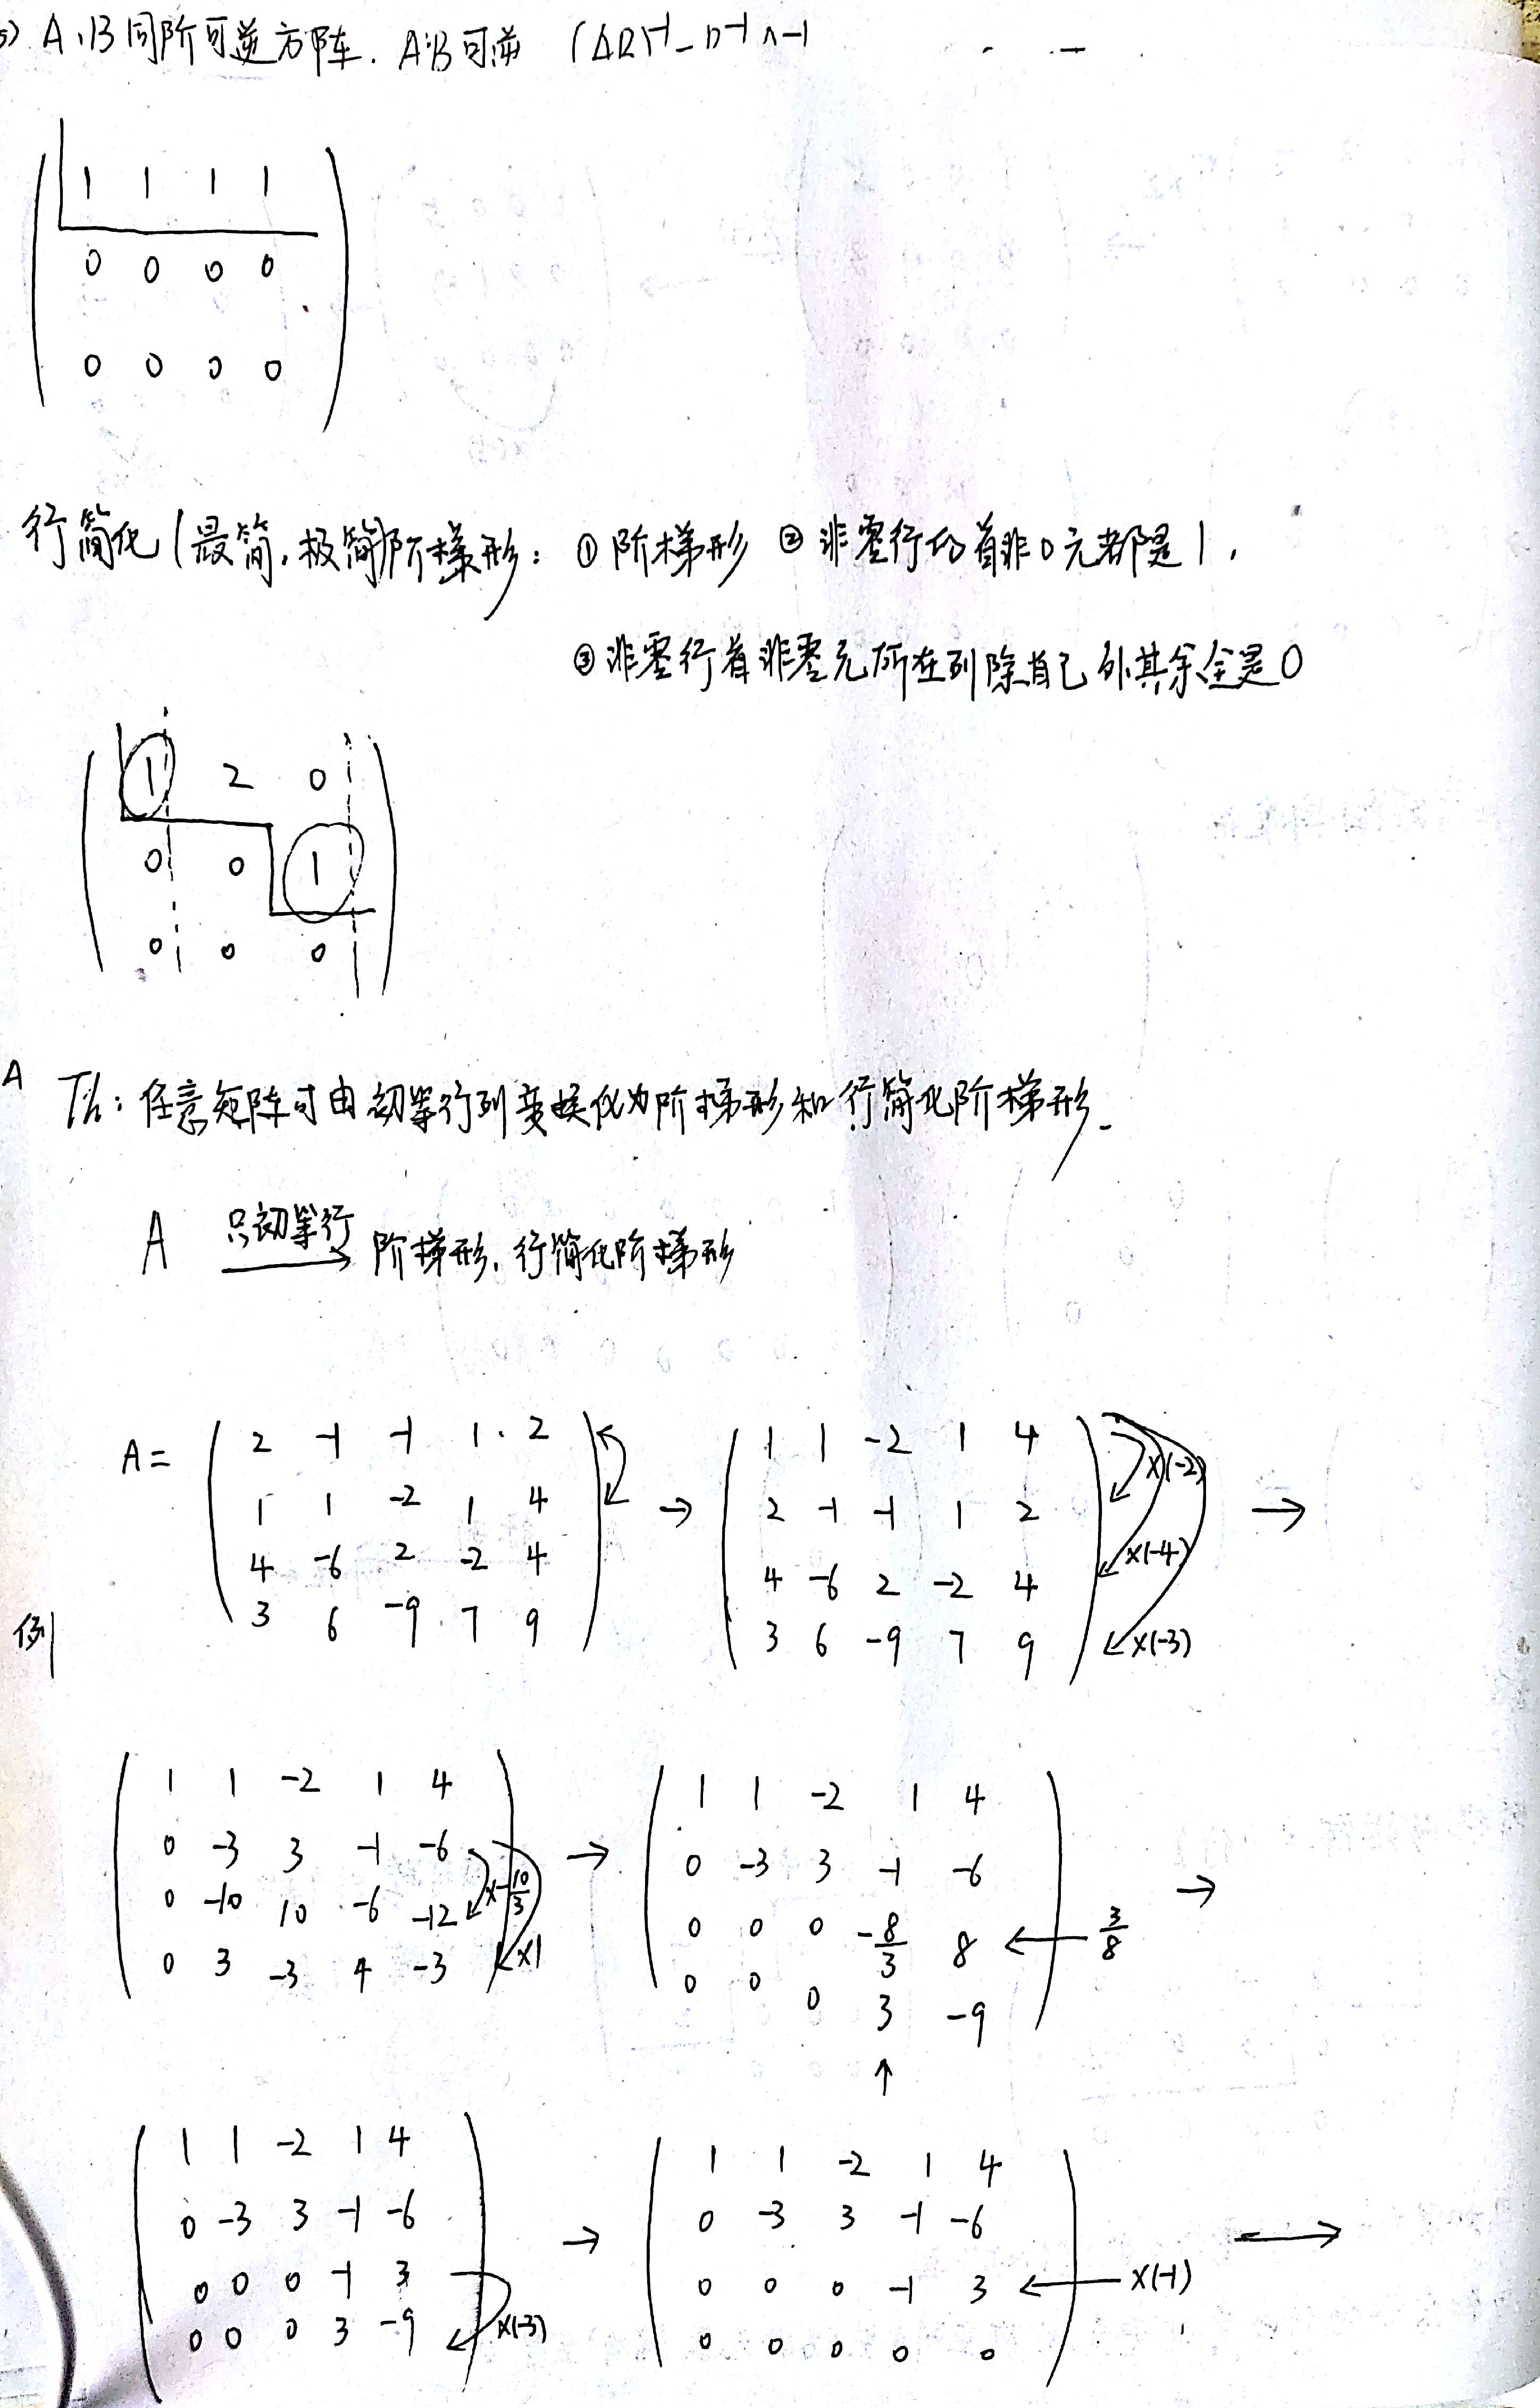 A、B同阶可逆方阵. A·B可逆
1 1 1 1
0 0 0 0
0 0 0 0
行简化(最简,极简)阶梯形: ① 阶梯形 ② 非零行的首非0元都是1,
③ 非零行首非零元所在列除自己外其余全是0
1 2 0
0 0 1
0 0 0
A Th: 任意矩阵可由初等行列变换化为阶梯形和行简化阶梯形.
A 只初等行 → 阶梯形, 行简化阶梯形
A= ( 2 -1 -1 1 2 ) → ( 1 1 -2 1 4 ) ×(-2) →
1 1 -2 1 4 2 -1 -1 1 2
4 -6 2 -2 4 4 -6 2 -2 4 ×(-4)
例 3 6 -9 7 9 3 6 -9 7 9 ×(-3)
1 1 -2 1 4 1 1 -2 1 4
0 -3 3 -1 -6 → 0 -3 3 -1 -6 →
0 -10 10 -6 -12 ×-10/3 0 0 0 -8/3 8 ← 3/8
0 3 -3 4 -3 ×1 0 0 0 3 -9
↑
1 1 -2 1 4 1 1 -2 1 4
0 -3 3 -1 -6 → 0 -3 3 -1 -6 →
0 0 0 -1 3 0 0 0 -1 3 ← ×(-1)
0 0 0 3 -9 ×(-3) 0 0 0 0 0